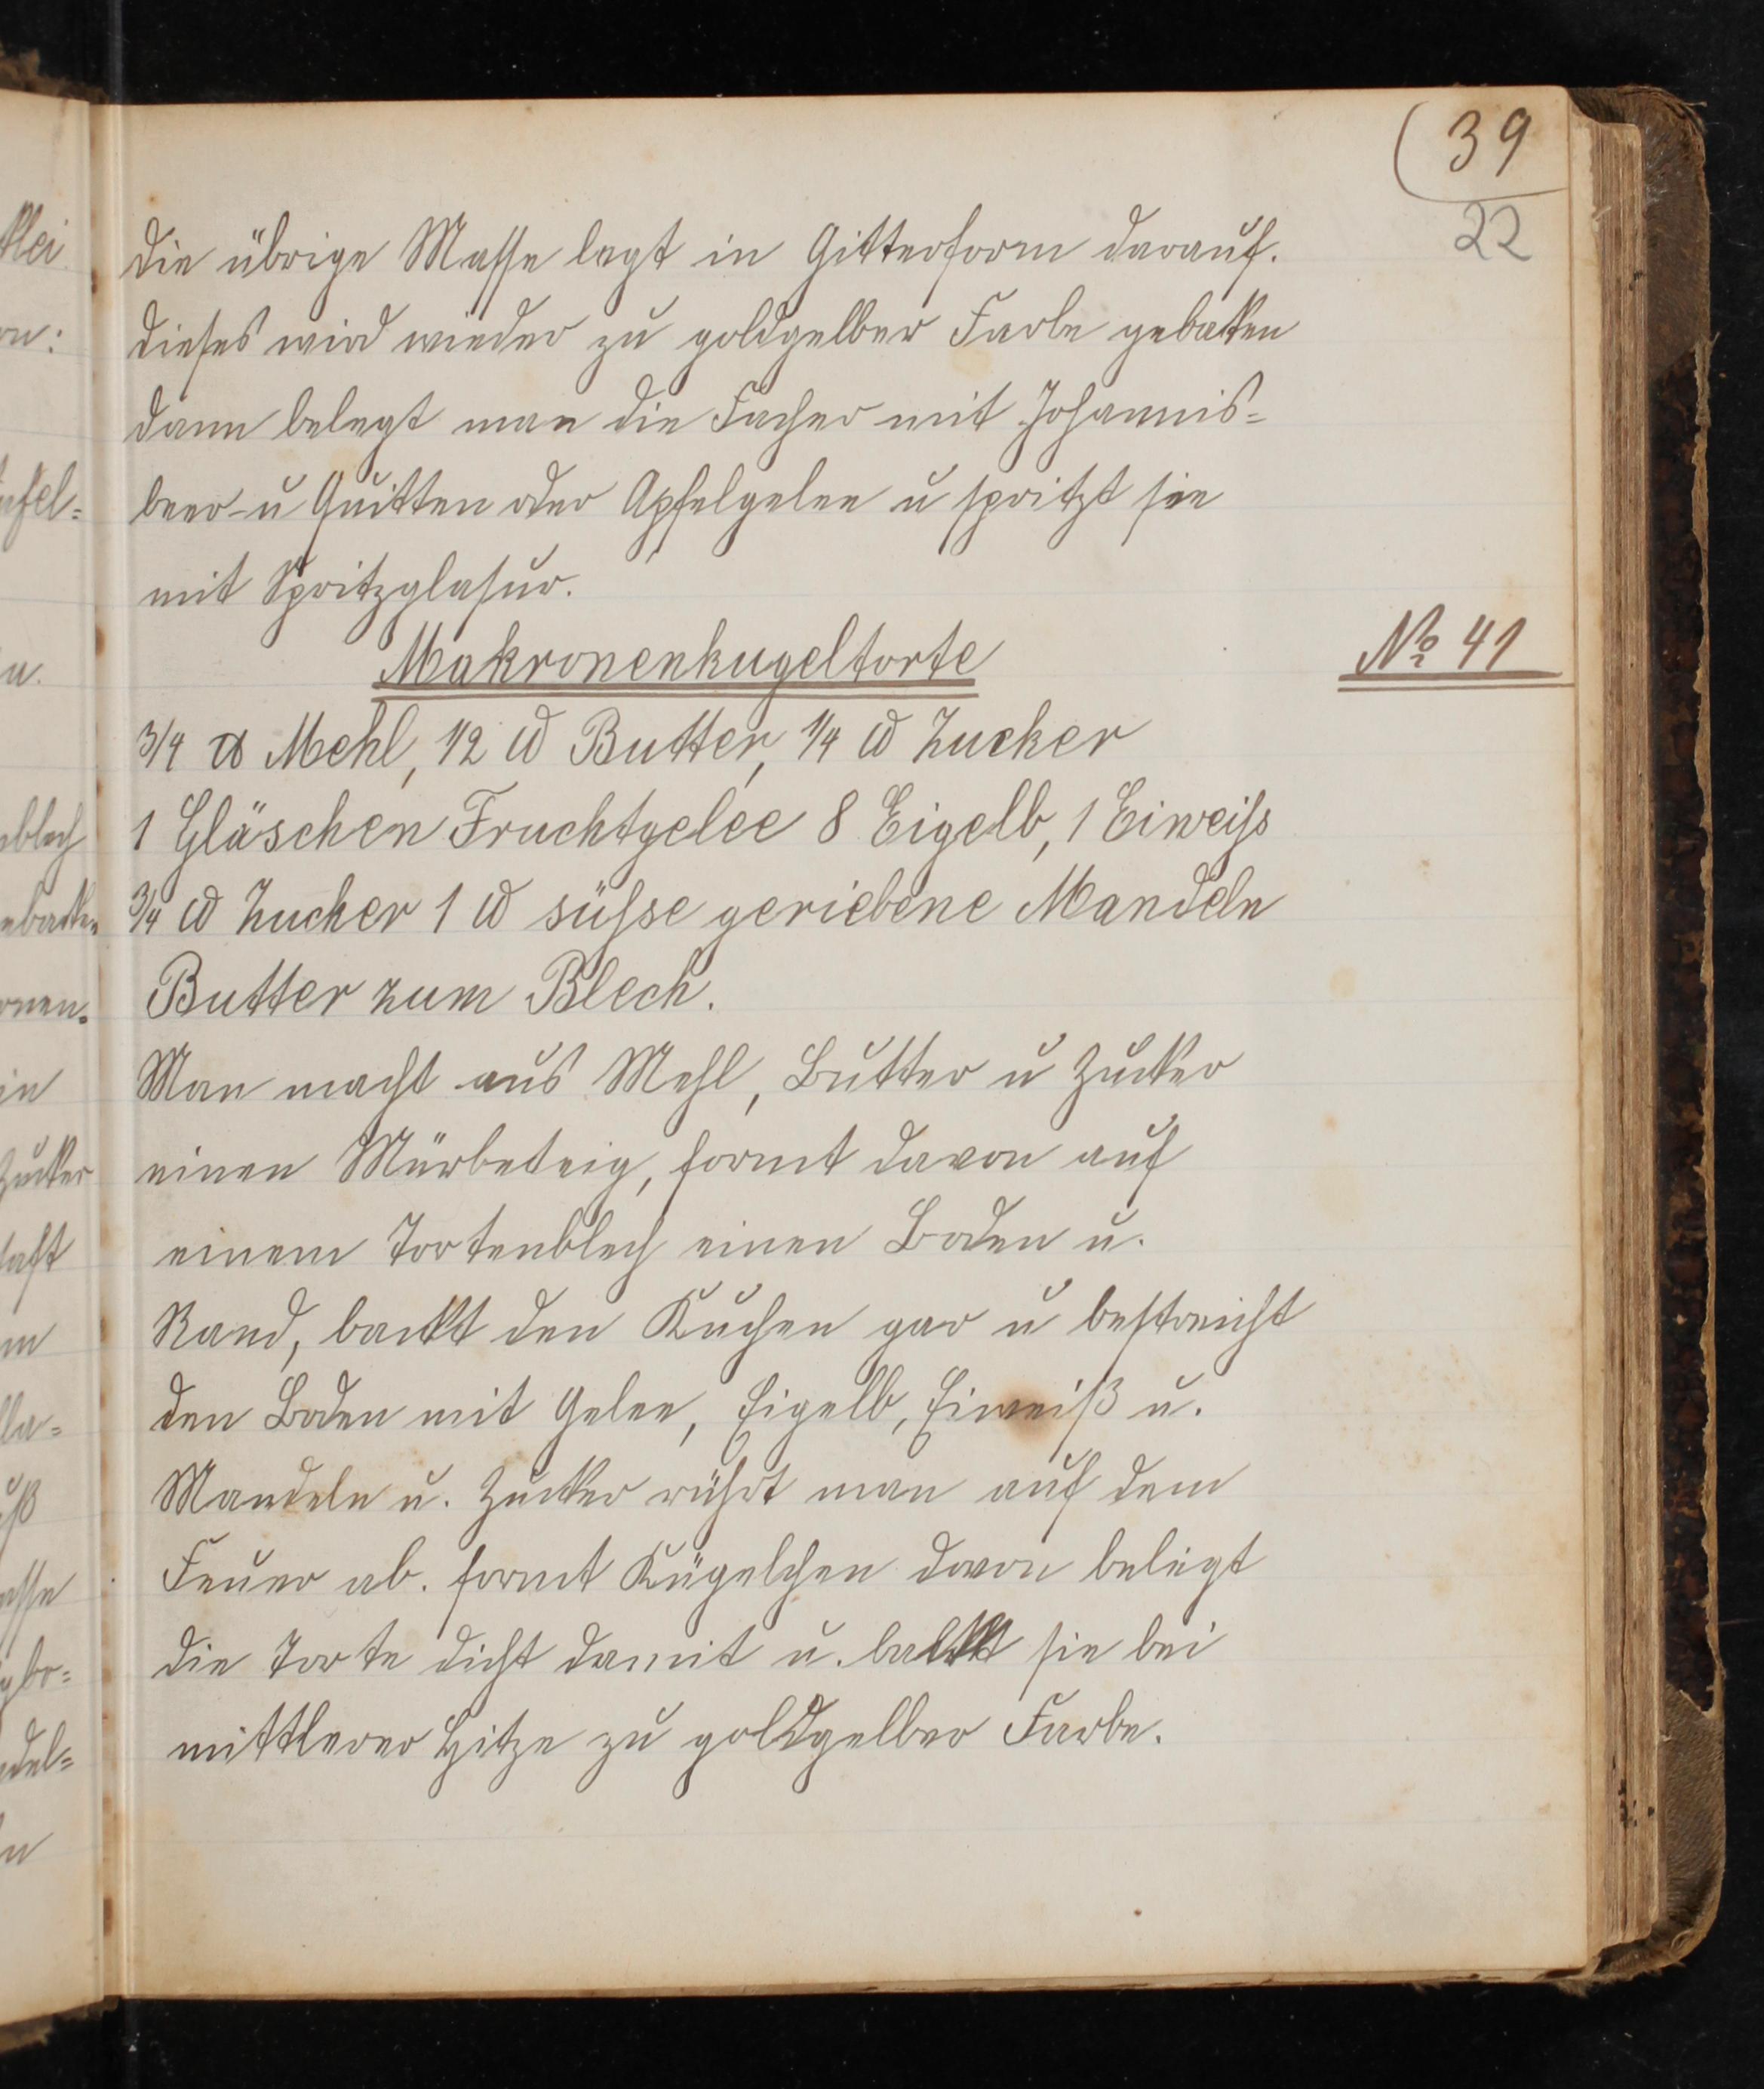 39
22
die übrige Masse legt in Gitterform darauf.
dieses wird wieder zu goldgelber Farbe gebacken
dann belegt man die Fächer mit Johannis-
beer- u Quitten oder Apfelgelee u spritzt sie
mit Spritzglasur.
Makronenkugeltorte
No 41
3/4 ℔ Mehl, 1/2 ℔ Butter, 1/4 ℔ Zucker
1 Gläschen Fruchtgelee 8 Eigelb, 1 Eiweiss
3/4 ℔ Zucker 1 ℔ süsse geriebene Mandeln
Butter zum Blech.
Man macht aus Mehl, Butter u Zucker
einen Mürbeteig, formt davon auf
einem Tortenblech einen Boden u.
Rand, backt den Kuchen gar u bestreicht
den Boden mit Gelee, Eigelb, Eiweiß u.
Mandeln u. Zucker rührt man auf dem
Feuer ab. formt Kügelchen davon belegt
die Torte dicht damit u. backt sie bei
mittlerer Hitze zu goldgelber Farbe.